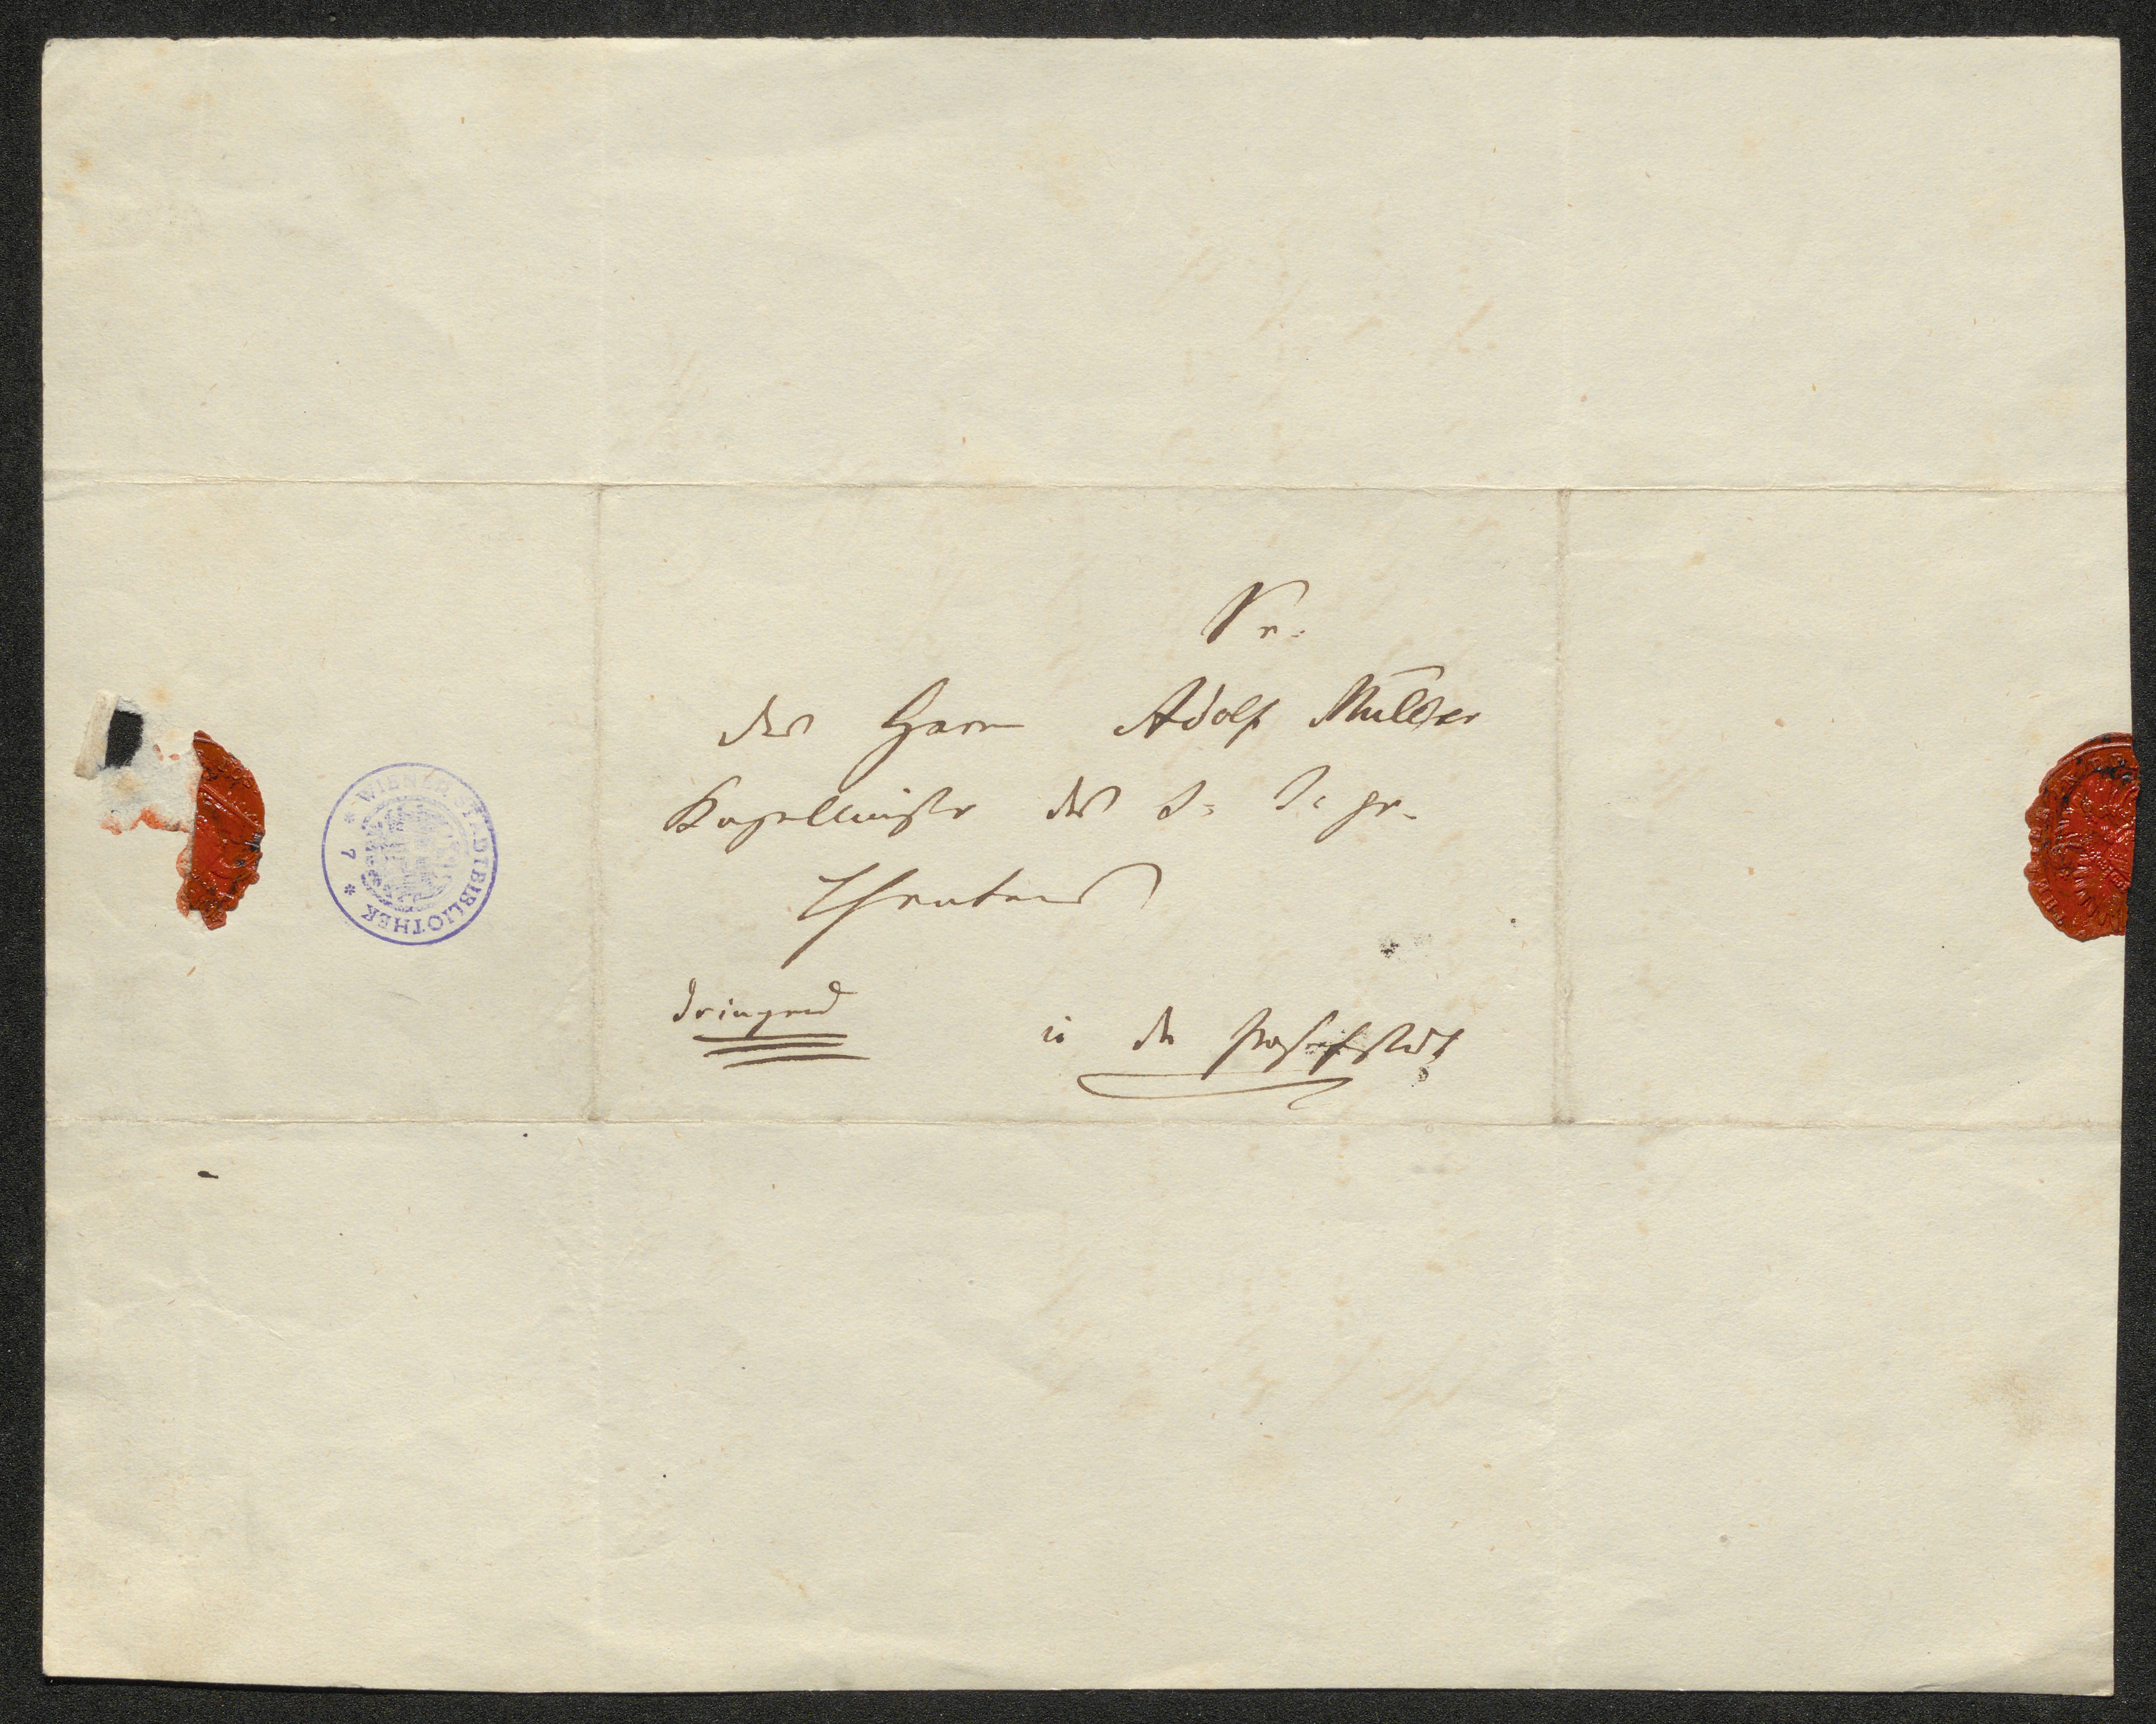 Sr.
des Herrn Adolf Müller
Kapellmeister des k: k: pr.
Theaters
dringend
in der Josefstadt
WIENER STADTBIBLIOTHEK
* 7 *